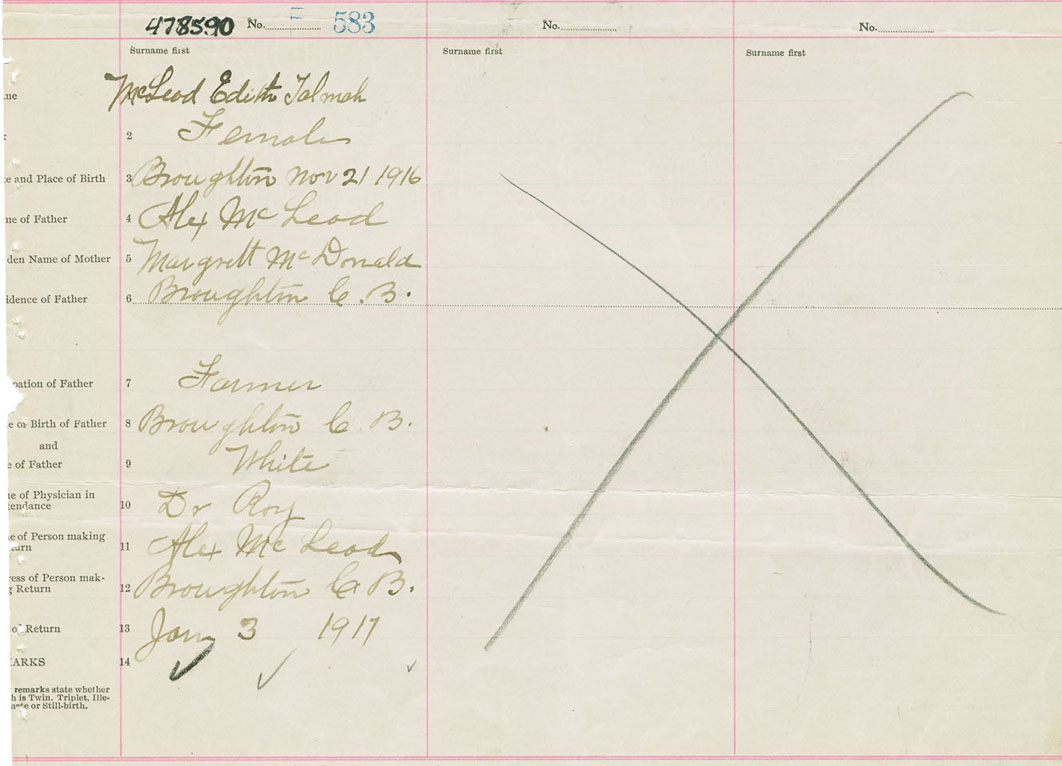 478590 No. 583
No.
No.
Surname first
Surname first
Surname first
me 1 McLeod Edith Talmah
2 Female
e and Place of Birth 3 Broughton Nov 21 1916
me of Father 4 Alex McLeod
den Name of Mother 5 Margrett McDonald
idence of Father 6 Broughton C. B.
pation of Father 7 Farmer
e or Birth of Father 8 Broughton C. B.
and
e of Father 9 White
ne of Physician in
tendance 10 Dr Roy
e of Person making
urn 11 Alex McLeod
ress of Person mak-
g Return 12 Broughton C B.
of Return 13 Jan 3 1917
ARKS 14
remarks state whether
h is Twin, Triplet, Ille-
ate or Still-birth.